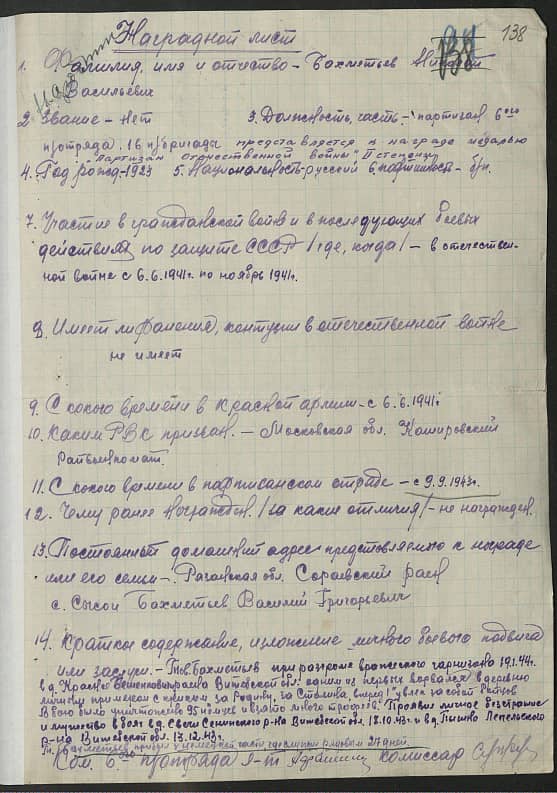 138
Наградной лист
1. Фамилия, имя и отчество – Бахметьев
Васильевич
2. Звание – Нет 3. Должность, часть – партизан 6ого
п/отряда 16 п/бригады представляется к награде медалью
"Партизан отечественной войны" II степени
4. Год рожд – 1923 5. Национальность – русский 6. партийность – б/п.
7. Участие в гражданской войне и в последующих боевых
действиях по защите СССР /где, когда/ – в отечествен-
ной войне с 6.6.1941 г. по ноябрь 1941 г.
8. Имеет ли ранения, контузии в отечественной войне
не имеет
9. С какого времени в Красной армии – с 6.6.1941 г
10. Каким РВК призван. – Московская обл. Кашировский
Райвоенкомат.
11. С какого времени в партизанском отряде – с 9.9.1943 г.
12. Чему ранее награжден /за какие отличия/ – не награжден.
13. Постоянный домашний адрес представляемого к награде
или его семьи – Рязанская обл. Сараевский район
с. Сысои Бахметьев Василий Григорьевич
14. Краткое содержание, изложение личного боевого подвига
или заслуги. – Тов. Бахметьев при разгроме вражеского гарнизона 19.1.44 г.
в д. Красное Витебской обл. одним из первых ворвался в деревню
с криком за Родину, за Сталина, вперед! увлек за собой
В бою было уничтожено 95 немцев и взято много трофеев. Проявил личное бесстрашие
и мужество в боях в д. Свечи Сенненского р-на Витебской обл. 18.10.43 г. и в д. Пышно Лепельского
р-на Витебской обл. 13.12.43 г.
Ком. 6го п/отряда л-т комиссар